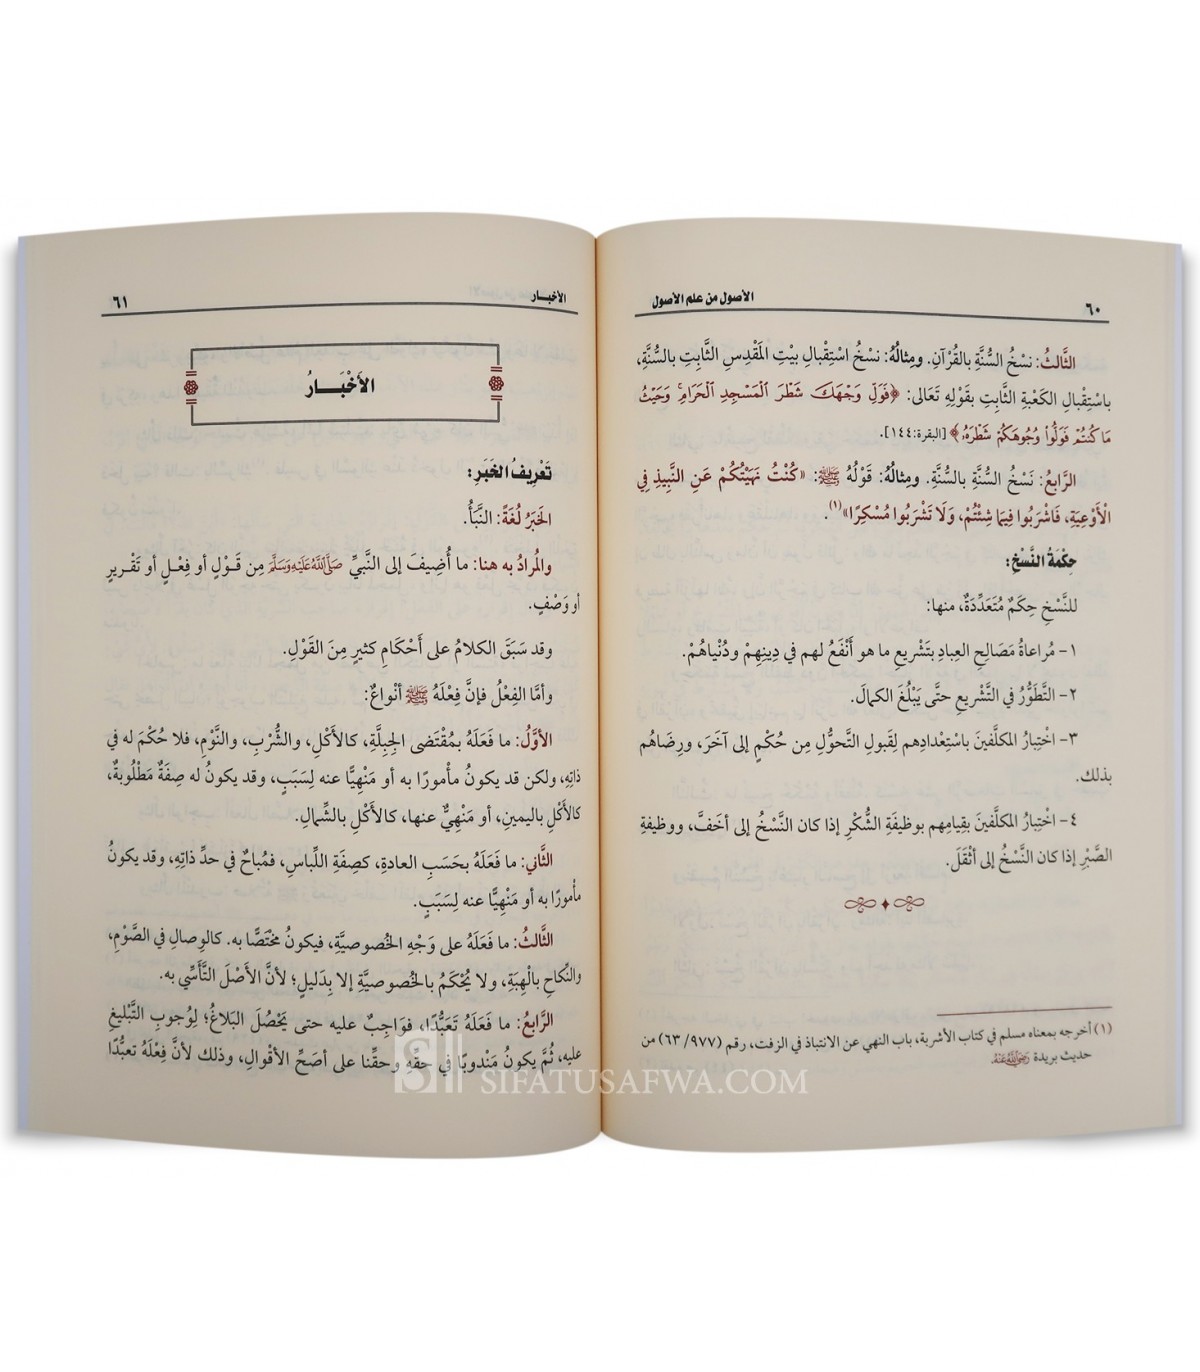 ٦٠
الأصول من علم الأصول
الثَّالثُ: نسْخُ السُّنَّةِ بالقُرْآنِ. ومِثالُهُ: نسْخُ اسْتِقْبالِ بيْتِ المَقْدِسِ الثَّابتِ بالسُّنَّةِ،
باسْتِقْبالِ الكَعْبةِ الثَّابتِ بقَوْلِهِ تَعَالَى: ﴿فَوَلِّ وَجْهَكَ شَطْرَ الْمَسْجِدِ الْحَرَامِ ۚ وَحَيْثُ
مَا كُنْتُمْ فَوَلُّوا وُجُوهَكُمْ شَطْرَهُ﴾ [البقرة:١٤٤].
الرَّابعُ: نَسْخُ السُّنَّةِ بالسُّنَّةِ. ومِثالُهُ: قَوْلُهُ ﷺ: «كُنْتُ نَهَيْتُكُمْ عَنِ النَّبِيذِ فِي
الْأَوْعِيَةِ، فَاشْرَبُوا فِيمَا شِئْتُمْ، وَلَا تَشْرَبُوا مُسْكِرًا»(١).
حِكْمَةُ النَّسْخِ:
للنَّسْخِ حِكَمٌ مُتَعَدِّدَةٌ، منها:
١- مُراعاةُ مَصَالِحِ العِبادِ بتَشْريعِ ما هو أَنْفَعُ لهم في دِينِهِمْ ودُنْياهُمْ.
٢- التَّطَوُّرُ في التَّشْريعِ حتَّى يَبْلُغَ الكمالَ.
٣- اخْتِبارُ المكلَّفينَ باسْتْعدادِهم لِقَبولِ التَّحوُّلِ مِن حُكْمٍ إلى آخَرَ، ورِضَاهُم
بذلك.
٤- اخْتِبارُ المكلَّفينَ بقِيامِهم بوَظيفَةِ الشُّكْرِ إذا كان النَّسْخُ إلى أخَفَّ، ووظيفةِ
الصَّبْرِ إذا كان النَّسْخُ إلى أثْقَلَ.
(١) أخرجه بمعناه مسلم في كتاب الأشربة، باب النهي عن الانتباذ في الزفت، رقم (٩٧٧/ ٦٣) من
حديث بريدة رَضِيَ اللَّهُ عَنْهُ
الأخبـار
٦١
الأَخْبَـارُ
تَعْرِيفُ الخَبَرِ:
الخَبَرُ لُغَةً: النَّبَأُ.
والمُرادُ به هنا: ما أُضِيفَ إلى النَّبيِّ صَلَّى اللَّهُ عَلَيْهِ وَسَلَّمَ مِن قَوْلٍ أو فِعْلٍ أو تَقْريرٍ
أو وَصْفٍ.
وقد سَبَقَ الكلامُ على أَحْكامِ كثيرٍ مِنَ القَوْلِ.
وأمَّا الفِعْلُ فإنَّ فِعْلَهُ ﷺ أنْواعٌ:
الأوَّلُ: ما فَعَلَهُ بمُقْتَضى الجِبِلَّةِ، كالأَكْلِ، والشُّرْبِ، والنَّوْمِ، فلا حُكْمَ له في
ذاتِهِ، ولكن قد يكونُ مأمورًا به أو مَنْهِيًّا عنه لِسَبَبٍ، وقد يكونُ له صِفَةٌ مَطْلوبةٌ،
كالأَكْلِ باليمينِ، أو مَنْهِيٌّ عنها، كالأَكْلِ بالشِّمالِ.
الثَّاني: ما فَعَلَهُ بحَسَبِ العادةِ، كصِفَةِ اللِّباسِ، فمُباحٌ في حدِّ ذاتِهِ، وقد يكونُ
مأمورًا به أو مَنْهِيًّا عنه لِسَبَبٍ.
الثَّالثُ: ما فَعَلَهُ على وَجْهِ الخُصوصيَّةِ، فيكونُ مُخْتَصًّا به. كالوِصالِ في الصَّوْمِ،
والنِّكاحِ بالْهِبَةِ، ولا يُحْكَمُ بالخُصوصيَّةِ إلا بِدَليلٍ؛ لأنَّ الأَصْلَ التَّأَسِّي به.
الرَّابعُ: ما فَعَلَهُ تَعبُّدًا، فوَاجِبٌ عليه حتى يَحْصُلَ البَلاغُ؛ لِوُجوبِ التَّبْليغِ
عليه، ثُمَّ يكونُ مَنْدوبًا في حقِّهِ وحقِّنا على أَصَحِّ الأقوالِ، وذلك لأنَّ فِعْلَهُ تعبُّدًا
SIFATUSAFWA.COM